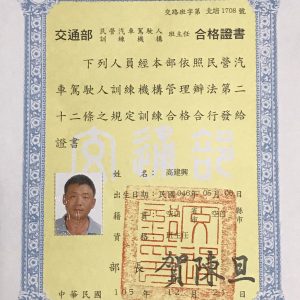 交路班字第 北班 1708 號
交通部 民營汽車駕駛人訓練機構 班主任 合格證書
下列人員經本部依照民營汽
車駕駛人訓練機構管理辦法第二
十二條之規定訓練合格合行發給
證書
姓名：高建興
出生日期：民國046年06月
籍貫：
縣市
資格：
部長 賀陳旦
中華民國 105 年 12 月